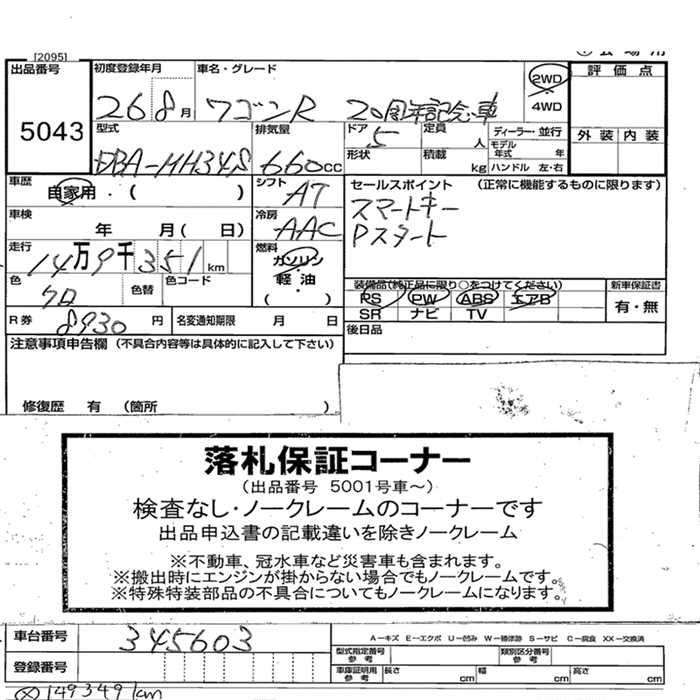 [2095]
出品番号
5043
初度登録年月
26 8月
車名・グレード
ワゴンR 20周年記念車
2WD
4WD
評価点
外装 内装
型式
DBA-MH34S
排気量
660cc
ドア
5
定員
人
ディーラー・並行
モデル年式 年
形状
積載
kg
ハンドル 左・右
車歴
自家用・( )
シフト
AT
セールスポイント (正常に機能するものに限ります)
スマートキー
Pスタート
車検
年 月( 日)
冷房
AAC
走行
14万9千351km
燃料
ガソリン
軽油
( )
色
クロ
色替
色コード
装備品(純正品に限り○をつけてください)
PS PW ABS エアB
SR ナビ TV
新車保証書
有・無
R券
8930円
名変通知期限 月 日
後日品
注意事項申告欄 (不具合内容等は具体的に記入して下さい)
修復歴 有 (箇所 )
落札保証コーナー
(出品番号 5001号車~)
検査なし・ノークレームのコーナーです
出品申込書の記載違いを除きノークレーム
※不動車、冠水車など災害車も含まれます。
※搬出時にエンジンが掛からない場合でもノークレームです。
※特殊特装部品の不具合についてもノークレームになります。
車台番号
345603
A-キズ E-エクボ U-凹み W-補修跡 S-サビ C-腐食 XX-交換済
登録番号
型式指定番号
参考
類別区分番号
参考
車庫証明用
参考
長さ cm
幅 cm
高さ cm
149349km